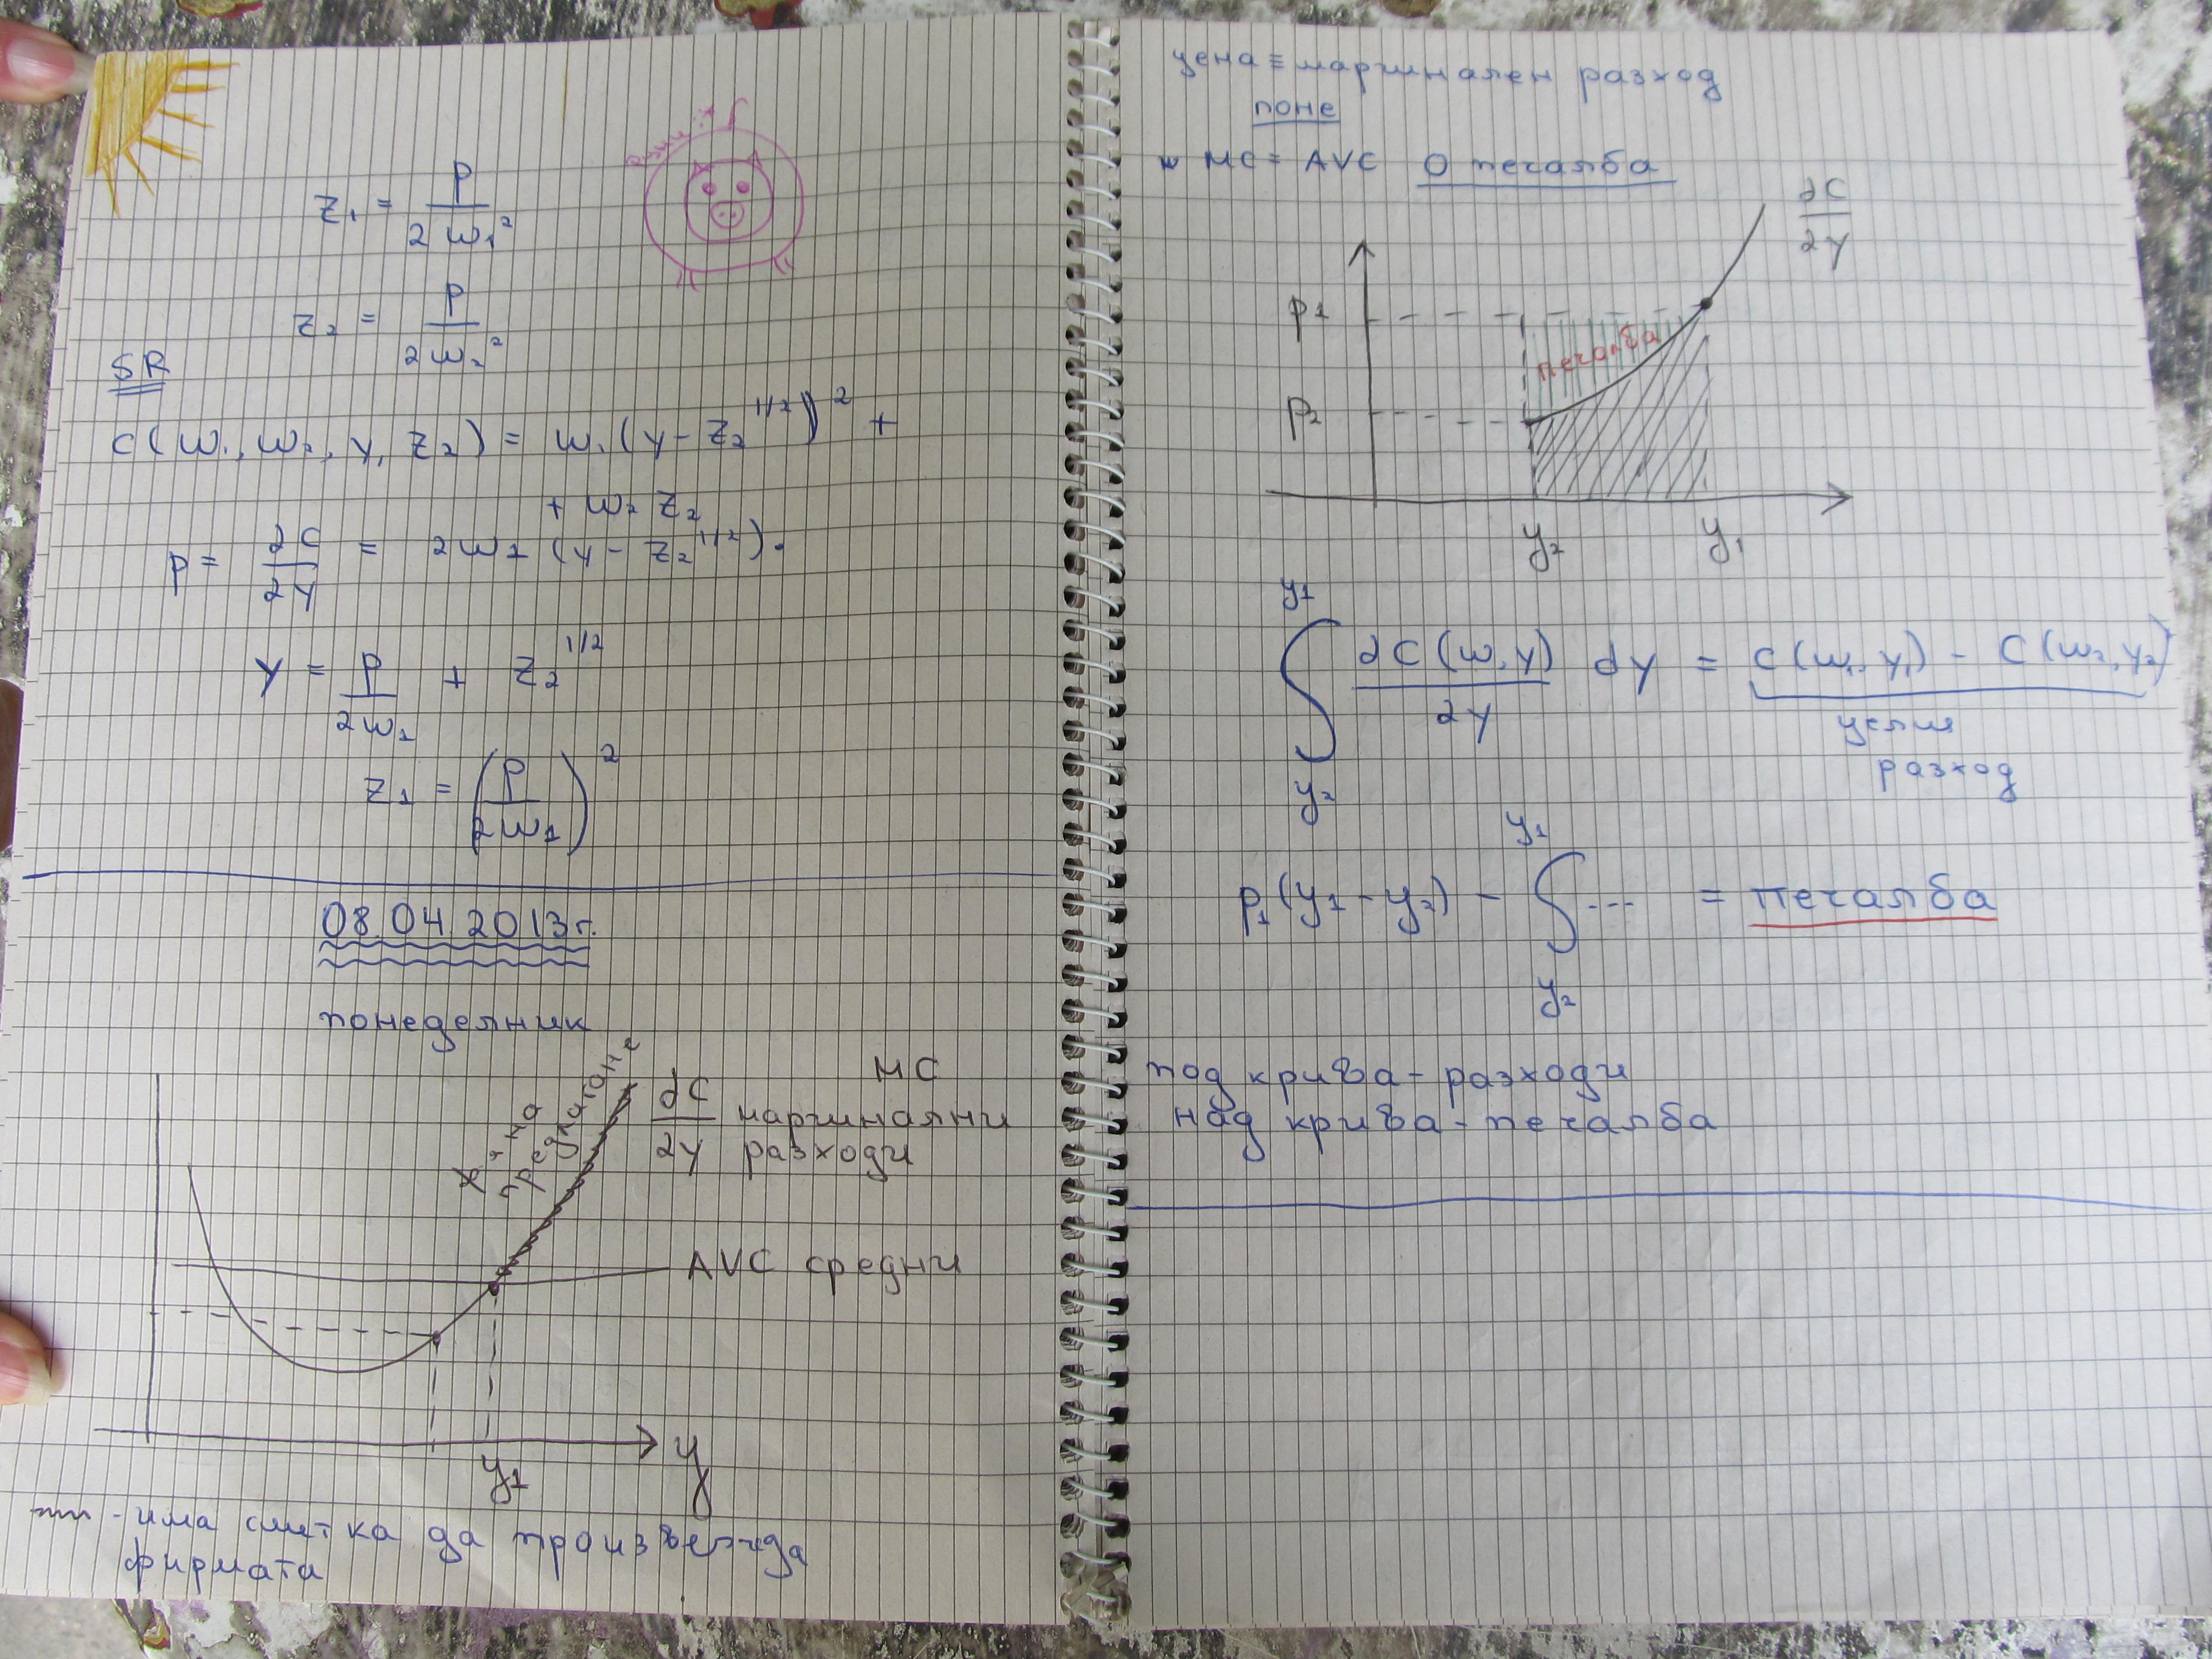 z₁ = p / 2w₁²
z₂ = p / 2w₂²
SR
C(w₁, w₂, y, z₂) = w₁(y - z₂^1/2)² +
+ w₂ z₂
p = ∂C/∂y = 2w1 (y - z₂^1/2).
y = p/2w1 + z₂^1/2
z1 = (p/2w1)²
08.04.2013г.
понеделник
ф-я на
предлагане
MC
∂C/∂y маргинални
разходи
AVC средни
y1
y
- има сметка да произвежда
фирмата
цена = маргинален разход
поне
MC = AVC 0 печалба
∂C/∂y
p1
печалба
p2
y₂ y₁
y1
∫ ∂C(w,y)/∂y dy = C(w₁,y₁) - C(w₂,y₂)
y₂
целия
разход
y1
p1(y1 - y₂) - ∫ --- = печалба
y₂
под крива - разходи
над крива - печалба